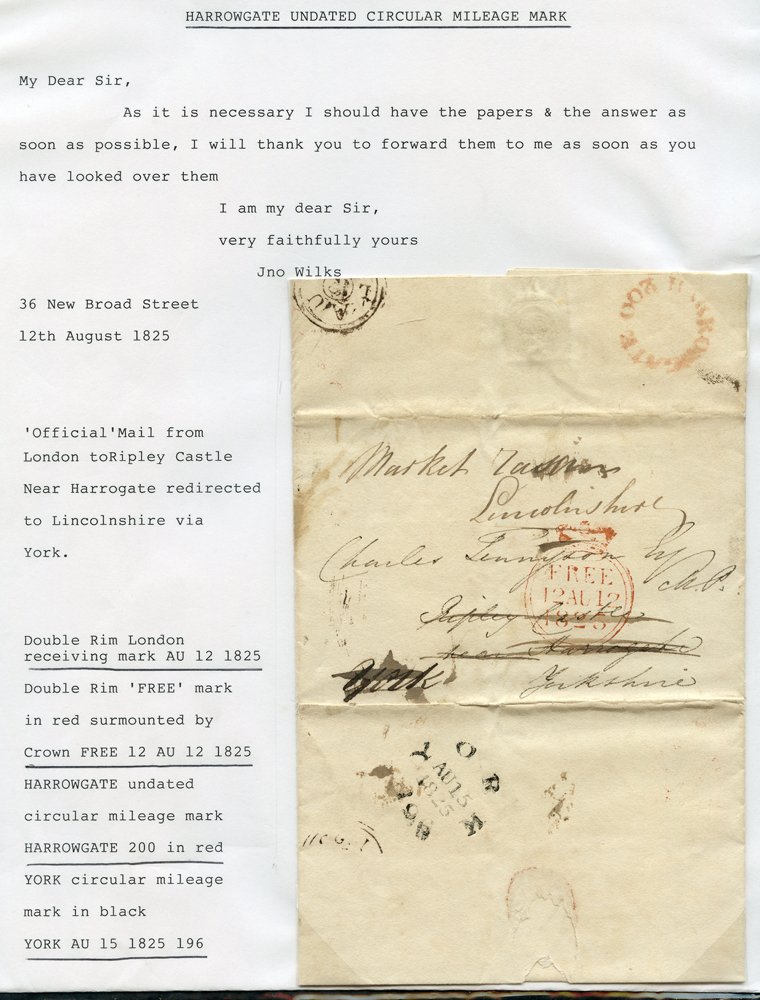 HARROWGATE UNDATED CIRCULAR MILEAGE MARK
My Dear Sir,
As it is necessary I should have the papers & the answer as
soon as possible, I will thank you to forward them to me as soon as you
have looked over them
I am my dear Sir,
very faithfully yours
Jno Wilks
36 New Broad Street
12th August 1825
'Official'Mail from
London toRipley Castle
Near Harrogate redirected
to Lincolnshire via
York.
Double Rim London
receiving mark AU 12 1825
Double Rim 'FREE' mark
in red surmounted by
Crown FREE 12 AU 12 1825
HARROWGATE undated
circular mileage mark
HARROWGATE 200 in red
YORK circular mileage
mark in black
YORK AU 15 1825 196
AU
HARROWGATE 200
Market
Lincolnshire
Charles Tennyson Esq
M.P.
FREE
12AU12
1825
Ripley Castle
near Harrogate
York Yorkshire
YORK
AU15
1825
196